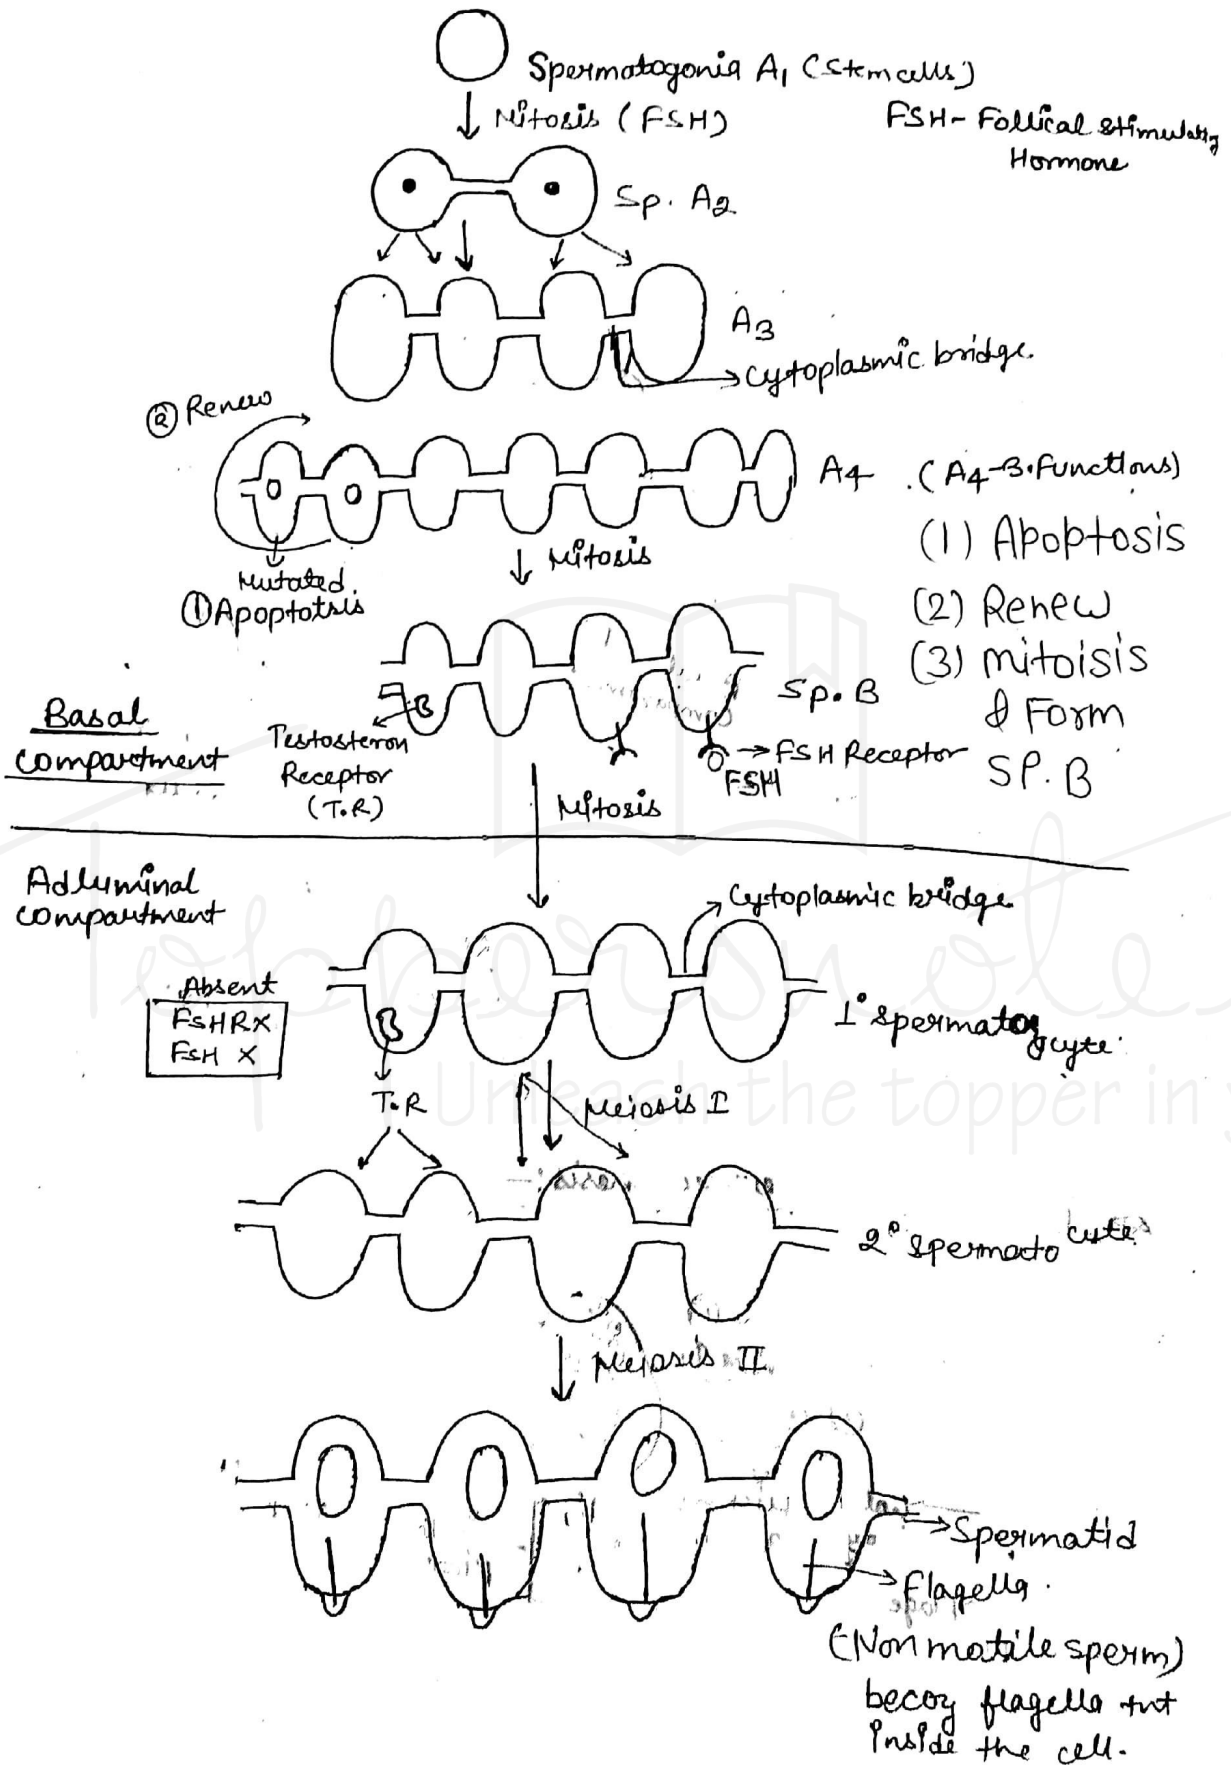 Spermatogonia A1 (Stem cells)
Mitosis (FSH)
FSH- Follical stimulating
Hormone
Sp. A2
A3
Cytoplasmic bridge.
② Renew
A4 . (A4-3.Functions)
(1) Apoptosis
(2) Renew
(3) mitoisis
& Form
SP. B
Mitosis
Mutated.
① Apoptotsis
Sp. B
Basal
compartment
Testosteron
Receptor
(T.R)
FSH Receptor
FSH
Mitosis
Adluminal
compartment
Cytoplasmic bridge
Absent
FSHR X
FSH X
1° spermatogcyte
T.R
Meiosis I
2° spermato cyte
Meiosis II
Spermatid
Flagella.
(Non matile sperm)
flagella
inside the cell.
Toppersnotes
Unleash the topper in